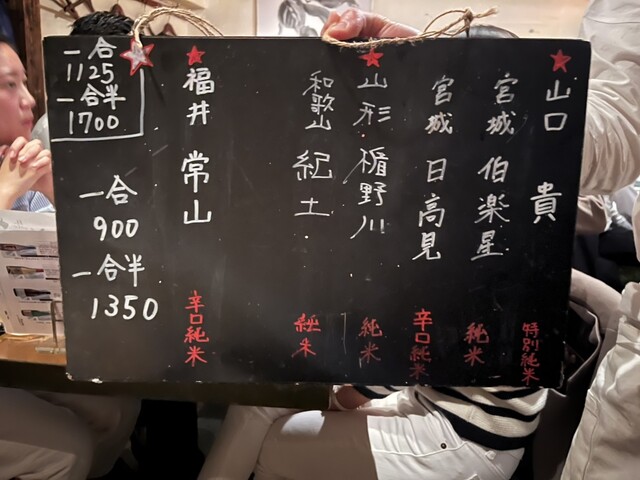 ★山口 貴 特別純米
宮城 伯楽星 純米
宮城 日高見 辛口純米
★山形 楯野川 純米
和歌山 紀土 純米
★福井 常山 辛口純米
★一合
1125
一合半
1700
一合
900
一合半
1350